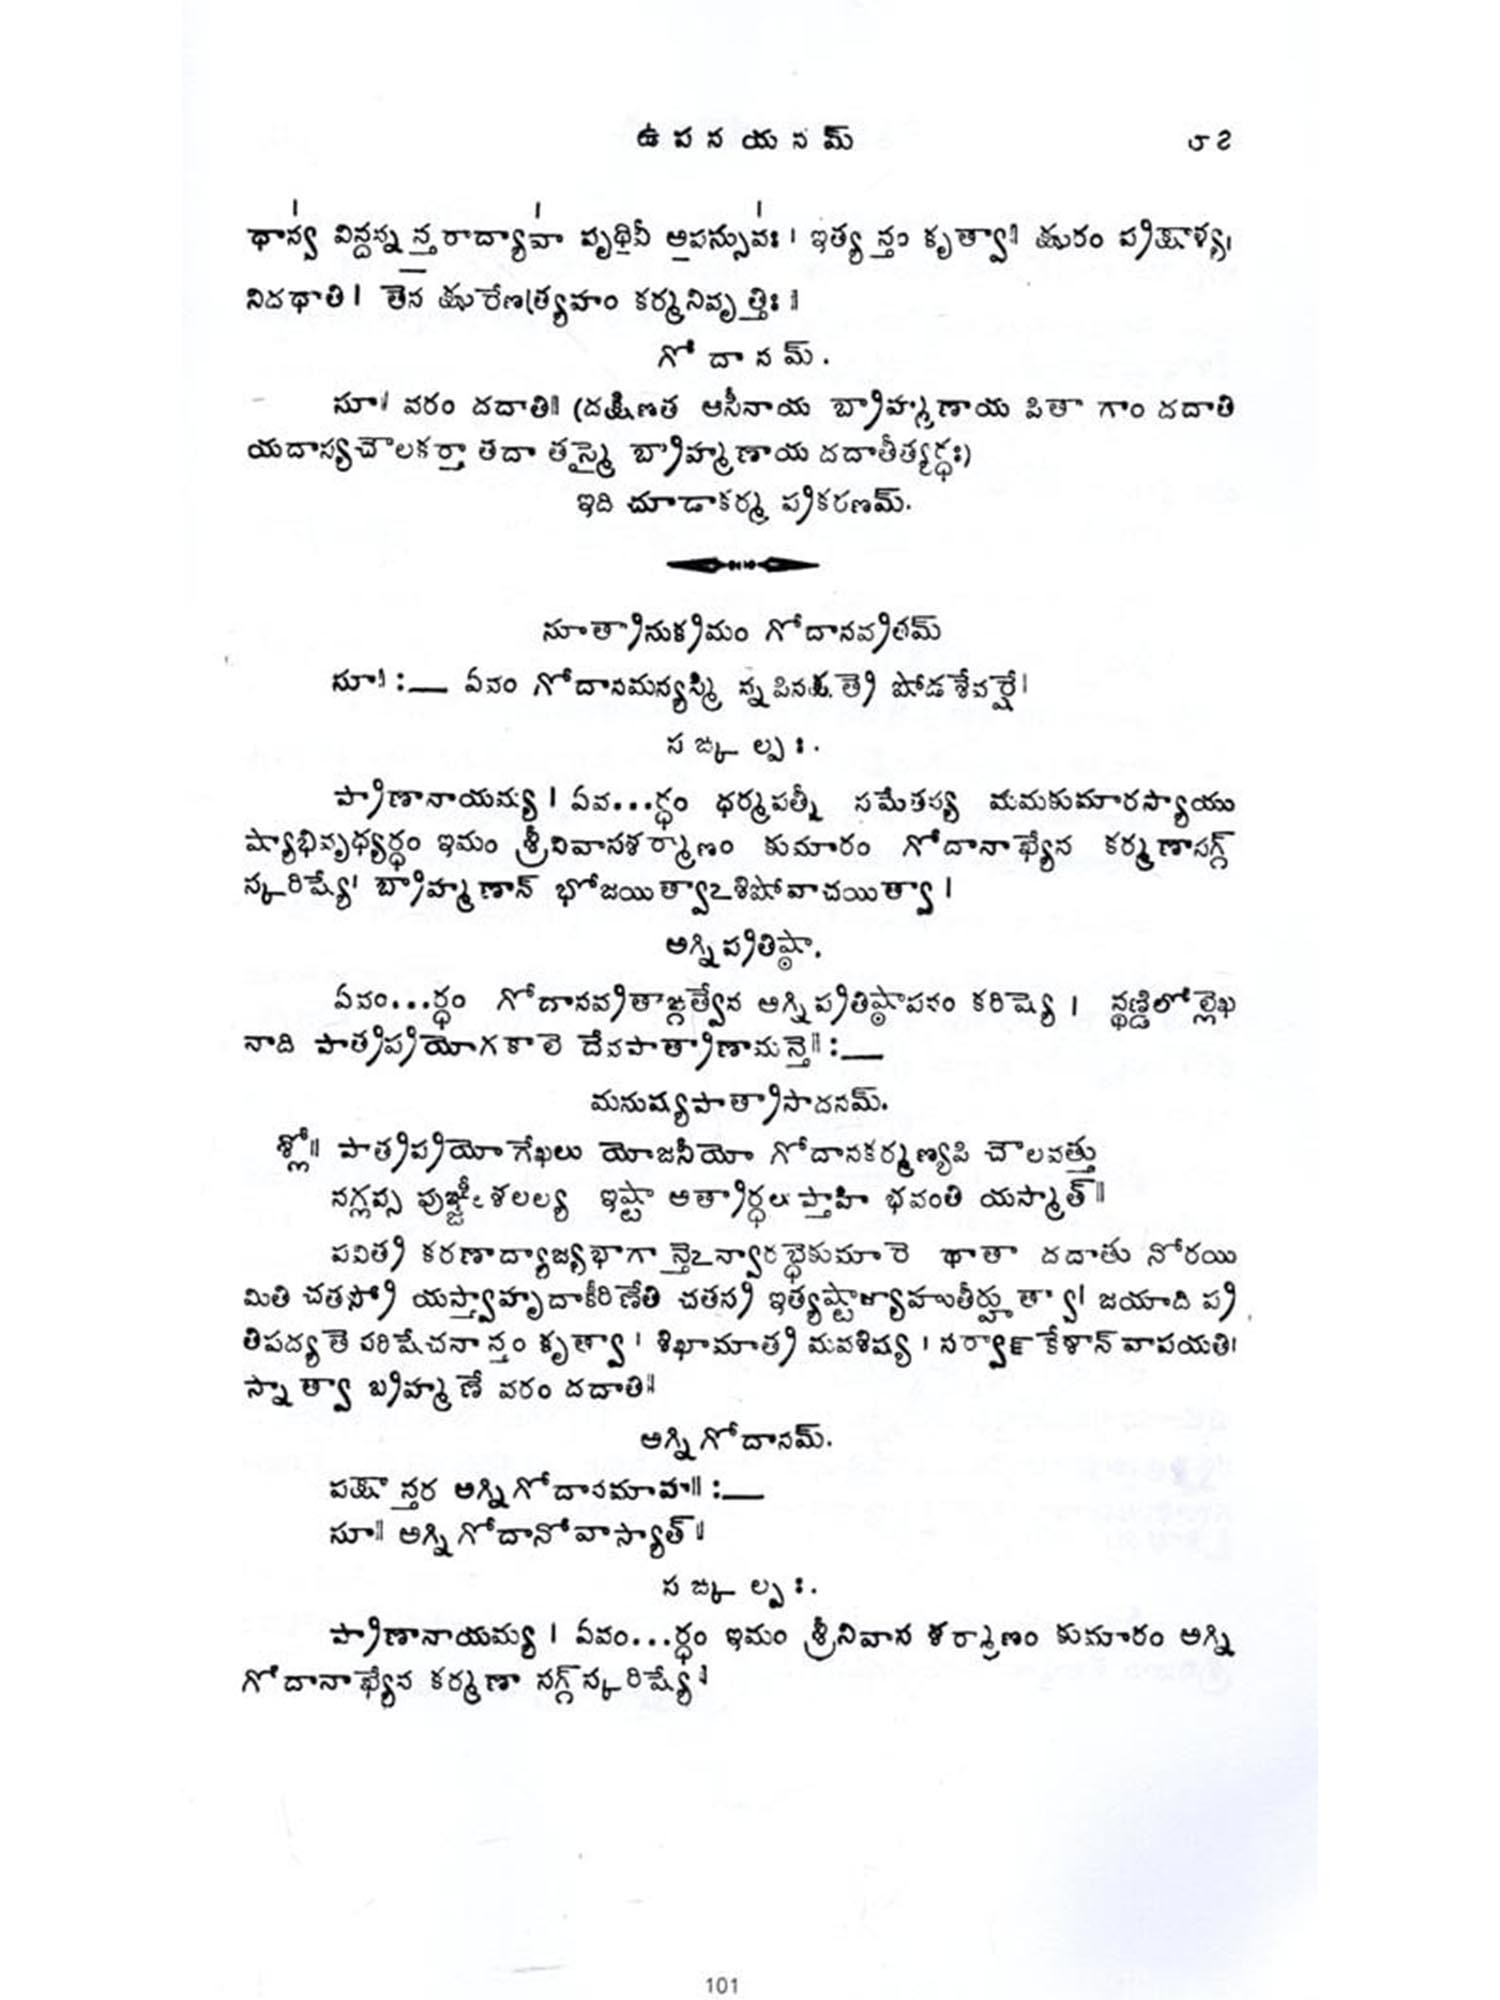 ఉపనయనమ్ ౮౭
థాన్వ విన్దన్న న్తరాద్యావా పృథివీ అపస్సువః। ఇత్య న్తం కృత్వా। క్షురం ప్రక్షాళ్య।
నిదధాతి। తేన క్షురేణత్ర్యహం కర్మనివృత్తిః॥
గోదానమ్.
సూ। వరం దదాతి॥ (దక్షిణత ఆసీనాయ బ్రాహ్మణాయ పితా గాం దదాతి
యదాస్యచౌలకర్తా తదా తస్మై బ్రాహ్మణాయ దదాతీత్యర్థః)
ఇది చూడాకర్మ ప్రకరణమ్.
సూత్రానుక్రమం గోదానవ్రతమ్
సూ। :— ఏవం గోదానమన్యస్మి న్నపినక్షత్రే షోడశేవర్షే।
సఙ్కల్పః.
ప్రాణానాయమ్య। ఏవ...ర్థం ధర్మపత్నీ సమేతస్య మమకుమారస్యాయు
ష్యాభివృధ్యర్థం ఇమం శ్రీనివాసశర్మాణం కుమారం గోదానాఖ్యేన కర్మణాసగ్గ్
స్కరిష్యే। బ్రాహ్మణాన్ భోజయిత్వాఽశిషోవాచయిత్వా।
అగ్నిప్రతిష్ఠా.
ఏవం...ర్థం గోదానవ్రతాఙ్గత్వేన అగ్నిప్రతిష్ఠాపనం కరిష్యె। స్థణ్డిలోల్లెఖ
నాది పాత్రప్రయోగకాలె దేవపాత్రాణామన్తె॥ :—
మనుష్యపాత్రాసాదనమ్.
శ్లో॥ పాత్రప్రయోగేఖలు యోజనీయో గోదానకర్మణ్యపి చౌలవత్తు
నగ్లప్స పుఞ్జీ శలల్య ఇష్టా ఆత్రార్థలు ప్తాహి భవంతి యస్మాత్॥
పవిత్ర కరణాద్యాజ్యభాగా న్తెఽన్వారబ్ధెకుమారె థాతా దదాతు నోరయి
మితి చతస్రో యస్త్వాహృదాకీరిణేతి చతస్ర ఇత్యష్టాజ్యాహుతీర్హుత్వా। జయాది ప్ర
తిపద్యతె పరిషేచనాన్తం కృత్వా। శిఖామాత్ర మవశిష్య। సర్వాన్ కేశాన్ వాపయతి।
స్నాత్వా బ్రహ్మణే వరం దదాతి॥
అగ్నిగోదానమ్.
పక్షాన్తర అగ్నిగోదానమాహ॥ :—
సూ॥ అగ్నిగోదానోవాస్యాత్।
సఙ్కల్పః.
ప్రాణానాయమ్య। ఏవం...ర్థం ఇమం శ్రీనివాస శర్మాణం కుమారం అగ్ని
గోదానాఖ్యేన కర్మణా సగ్గ్ స్కరిష్యే।
101